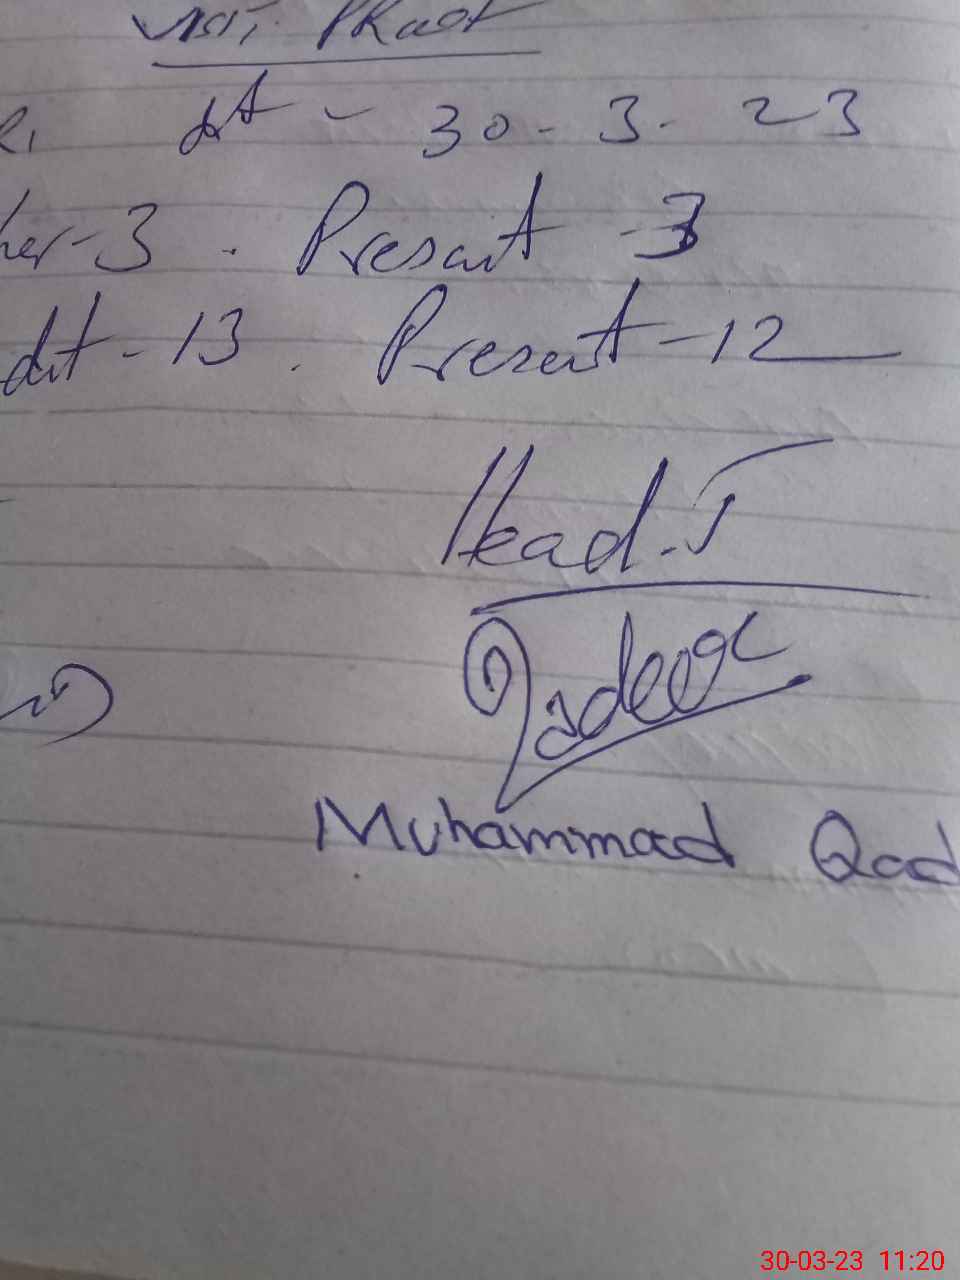 dt - 30-3-23
her-3 . Present -3
dnt-13 . Present-12
Head.T
Qadeer
Muhammad Qad
30-03-23 11:20